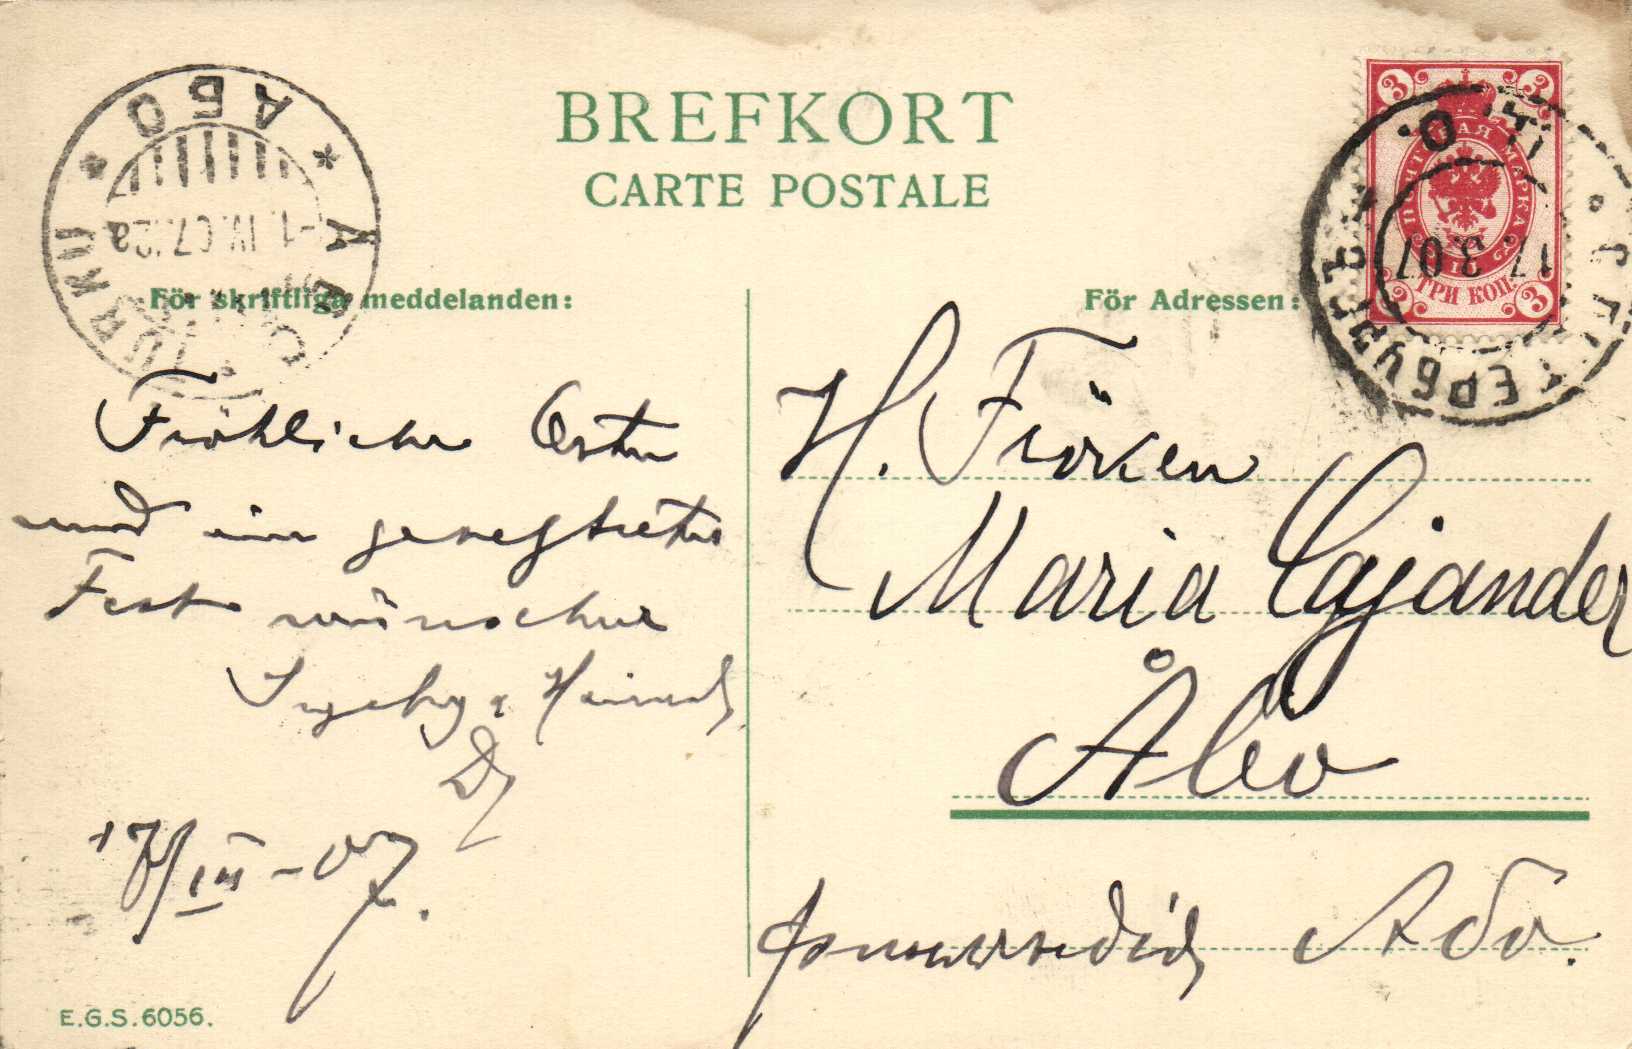 BREFKORT
CARTE POSTALE
АБО
ÅBO
TURKU
-1.IV.07.
С. ПЕТЕРБУРГЪ
17 3 07
3 3
ПОЧТОВАЯ МАРКА
ТРИ КОП.
3 3
För skriftliga meddelanden:
För Adressen:
Fröhliche Ostern
und ein gesegnetes
Fest wünschen
Heinrich
17/III-07.
H. Fröken
Maria Cajander
Åbo
Або.
E.G.S. 6056.